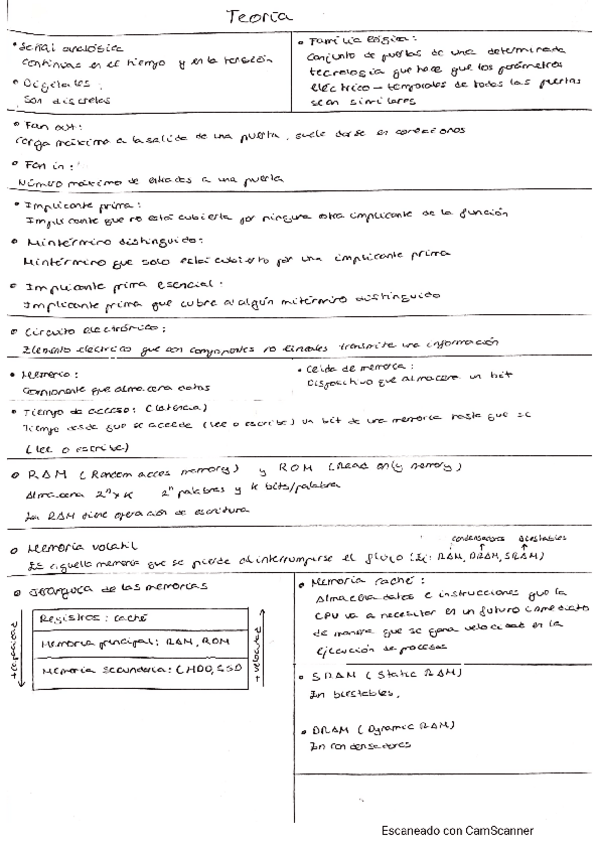 Teoría
• Señal analógica
continuas en el tiempo y en la tensión
• Digitales:
Son discretas
• Familia lógica:
Conjunto de puertas de una determinada
tecnología que hace que los parámetros
eléctrico-temporales de todas las puertas
sean similares
• Fan out:
Carga máxima a la salida de una puerta, suele darse en conexiones
• Fan in:
Número máximo de entradas a una puerta
• Implicante prima:
Implicante que no está cubierta por ninguna otra implicante de la función
• Mintérmino distinguido:
Mintérmino que solo está cubierto por una implicante prima
• Implicante prima esencial:
Implicante prima que cubre a algún mitérmino distinguido
• Circuito electrónico:
Elemento eléctrico que con componentes no lineales transmite una información
• Memoria:
Componente que almacena datos
• Celda de memoria:
Dispositivo que almacena un bit
• Tiempo de acceso: (latencia)
Tiempo desde que se accede (lee o escribe) un bit de una memoria hasta que se
(lee o escribe)
• RAM (Random acces memory) y ROM (Read only memory)
Almacena 2ⁿ x K 2ⁿ palabras y K bits/palabra
La RAM tiene operación de escritura
condensadores biestables
• Memoria volatil
Es aquella memoria que se pierde al interrumpirse el flujo (Ej: RAM, DRAM, SRAM)
• Jerarquía de las memorias
+capacidad
Registros: caché
Memoria principal: RAM, ROM
Memoria secundaria: (HDD, SSD
+velocidad
• Memoria caché:
Almacena datos e instrucciones que la
CPU va a necesitar en un futuro inmediato
de manera que se gana velocidad en la
ejecución de procesos
• SRAM (Static RAM)
En biestables.
• DRAM (Dynamic RAM)
En condensadores
Escaneado con CamScanner